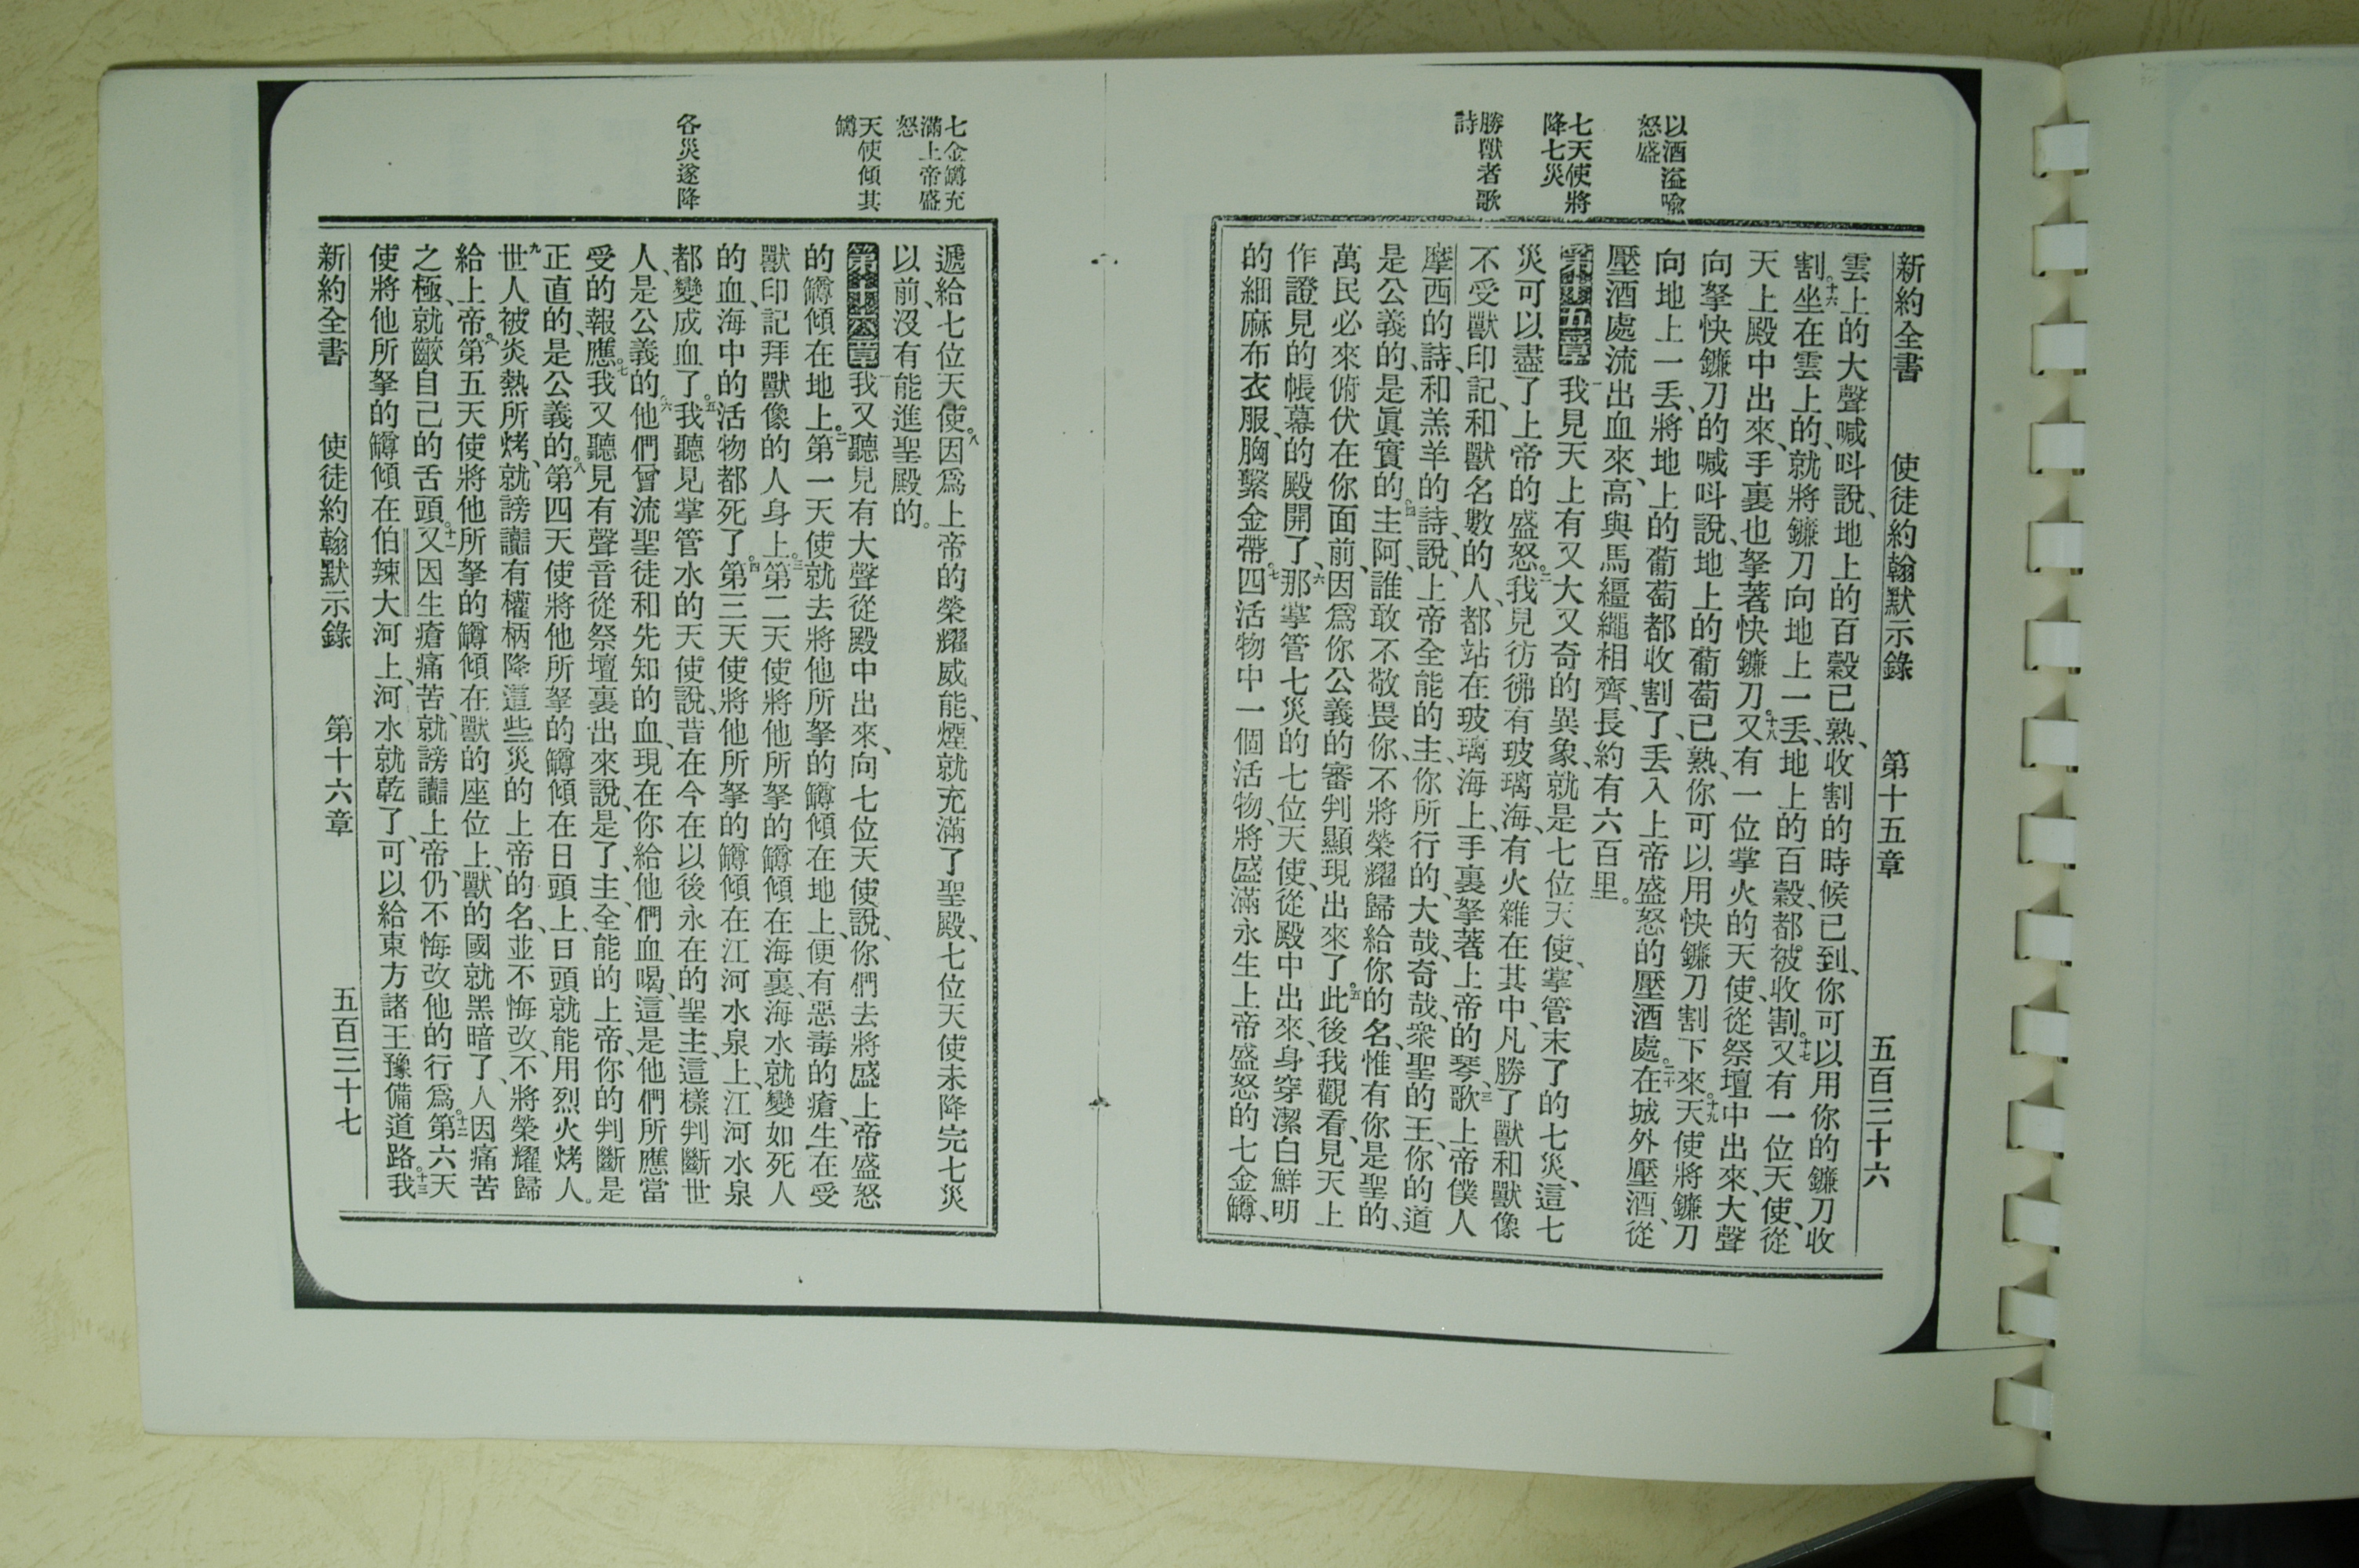 以酒溢喩
怒盛
七天使將
降七災
勝獸者歌
詩
新約全書 使徒約翰默示錄 第十五章 五百三十六
雲上的大聲喊呌說、地上的百穀已熟、收割的時候已到、你可以用你的鐮刀收
割。十六坐在雲上的、就將鐮刀向地上一丢、地上的百穀、都被收割。十七又有一位天使、從
天上殿中出來、手裏也拏著快鐮刀。十八又有一位掌火的天使、從祭壇中出來、大聲
向拏快鐮刀的喊呌說、地上的葡萄已熟、你可以用快鐮刀割下來。十九天使將鐮刀
向地上一丢、將地上的葡萄都收割了、丢入上帝盛怒的壓酒處。二十在城外壓酒、從
壓酒處流出血來、高與馬繮繩相齊、長約有六百里。
第十五章 一我見天上有又大又奇的異象、就是七位天使、掌管末了的七災、這七
災可以盡了上帝的盛怒。二我見彷彿有玻璃海、有火雜在其中、凡勝了獸和獸像
不受獸印記、和獸名數的人、都站在玻璃海上、手裏拏著上帝的琴、三歌上帝僕人
摩西的詩、和羔羊的詩、說、上帝全能的主、你所行的、大哉、奇哉、衆聖的王、你的道
是公義的、是眞實的。四主阿、誰敢不敬畏你、不將榮耀歸給你的名、惟有你是聖的、
萬民必來俯伏在你面前、因爲你公義的審判顯現出來了。五此後我觀看、見天上
作證見的帳幕的殿開了、六那掌管七災的七位天使、從殿中出來、身穿潔白鮮明
的細麻布衣服、胸繫金帶。七四活物中一個活物、將盛滿永生上帝盛怒的七金罇、
七金罇充
滿上帝盛
怒
天使傾其
罇
各災遂降
遞給七位天使。八因爲上帝的榮耀威能、煙就充滿了聖殿、七位天使未降完七災
以前、沒有能進聖殿的。
第十六章 一我又聽見有大聲從殿中出來、向七位天使說、你們去將盛上帝盛怒
的罇傾在地上。二第一天使就去將他所拏的罇傾在地上、便有惡毒的瘡、生在受
獸印記拜獸像的人身上。三第二天使將他所拏的罇傾在海裏、海水就變如死人
的血、海中的活物都死了。四第三天使將他所拏的罇傾在江河水泉上、江河水泉
都變成血了。五我聽見掌管水的天使說、昔在今在以後永在的聖主、這樣判斷世
人、是公義的。六他們曾流聖徒和先知的血、現在你給他們血喝、這是他們所應當
受的報應。七我又聽見有聲音從祭壇裏出來說、是了、主、全能的上帝、你的判斷是
正直的、是公義的。八第四天使將他所拏的罇傾在日頭上、日頭就能用烈火烤人。
九世人被炎熱所烤、就謗讟有權柄降這些災的上帝的名、並不悔改、不將榮耀歸
給上帝。十第五天使將他所拏的罇傾在獸的座位上、獸的國就黑暗了、人因痛苦
之極、就齩自己的舌頭。十一又因生瘡痛苦、就謗讟上帝、仍不悔改他的行爲。十二第六天
使將他所拏的罇傾在伯辣大河上、河水就乾了、可以給東方諸王豫備道路。十三我
新約全書 使徒約翰默示錄 第十六章 五百三十七